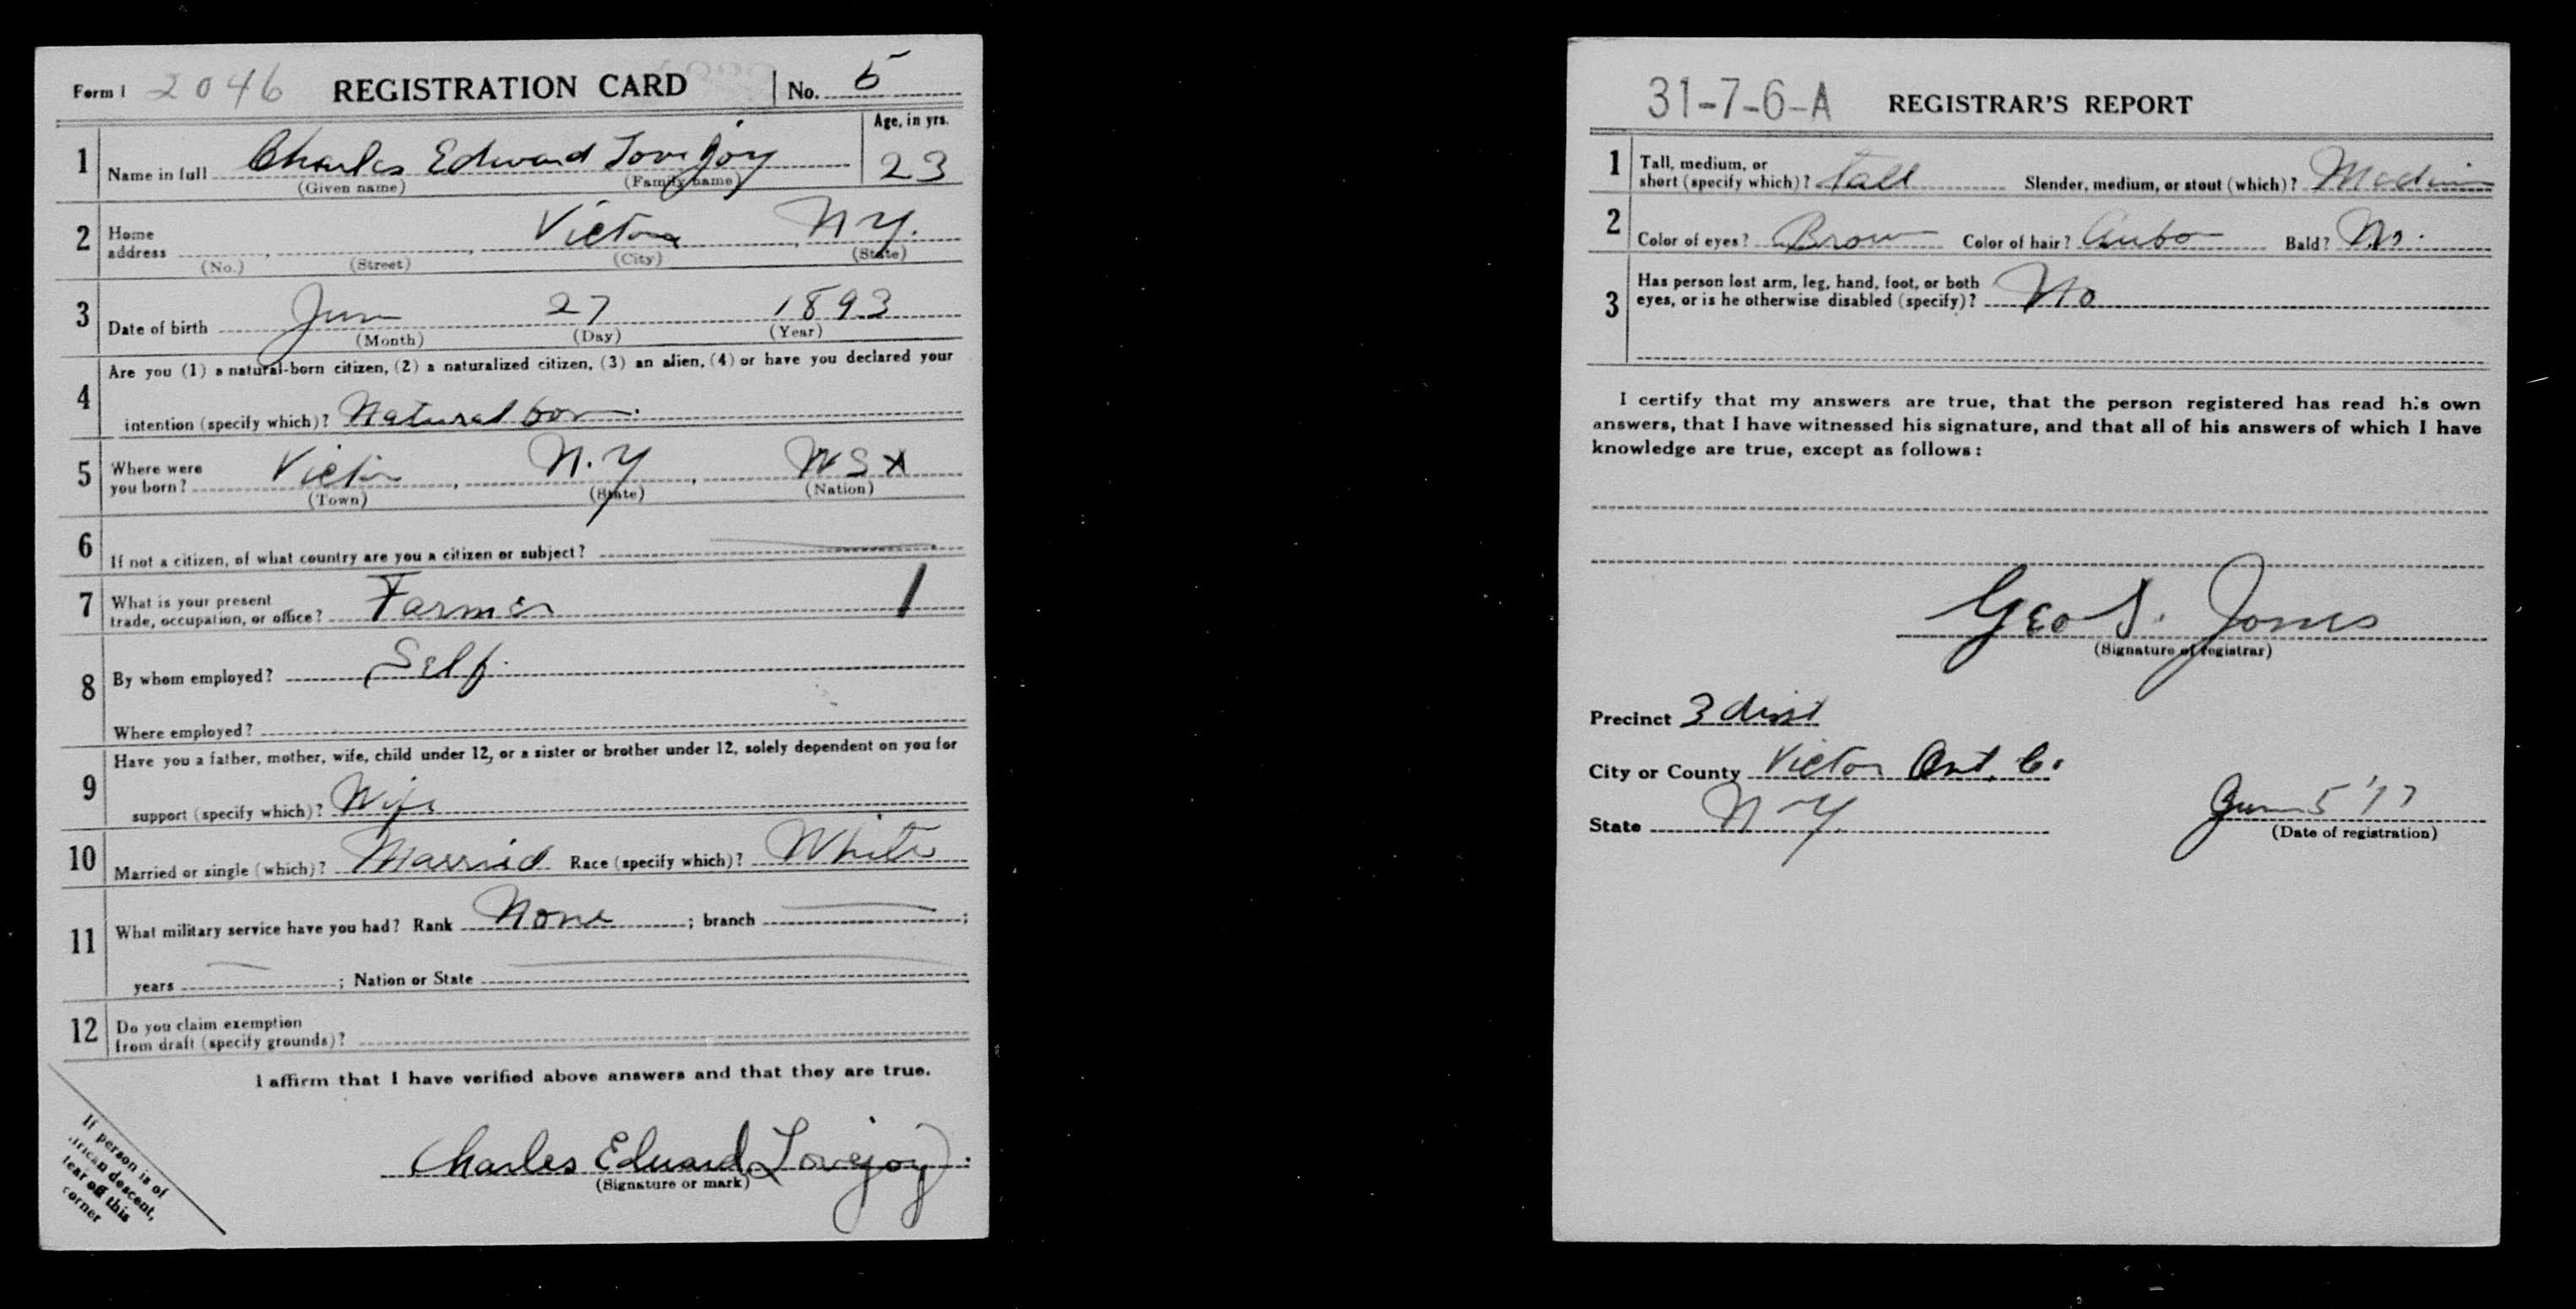 Form 1 2046 REGISTRATION CARD No. 5
1 Name in full Charles Edward Lovejoy Age, in yrs. 23
(Given name) (Family name)
2 Home address Victor N.Y.
(No.) (Street) (City) (State)
3 Date of birth Jun 27 1893
(Month) (Day) (Year)
4 Are you (1) a natural-born citizen, (2) a naturalized citizen, (3) an alien, (4) or have you declared your
intention (specify which)? Natural born
5 Where were you born? Victor N.Y USA
(Town) (State) (Nation)
6 If not a citizen, of what country are you a citizen or subject?
7 What is your present trade, occupation, or office? Farmer 1
8 By whom employed? Self.
Where employed?
9 Have you a father, mother, wife, child under 12, or a sister or brother under 12, solely dependent on you for
support (specify which)? Wife
10 Married or single (which)? Married Race (specify which)? White
11 What military service have you had? Rank None ; branch ;
years ; Nation or State
12 Do you claim exemption from draft (specify grounds)?
I affirm that I have verified above answers and that they are true.
Charles Edward Lovejoy.
(Signature or mark)
If person is of
African descent,
tear off this
corner
31-7-6-A REGISTRAR'S REPORT
1 Tall, medium, or short (specify which)? Tall Slender, medium, or stout (which)? Medium
2 Color of eyes? Brown Color of hair? Aubo Bald? No.
3 Has person lost arm, leg, hand, foot, or both eyes, or is he otherwise disabled (specify)? No
I certify that my answers are true, that the person registered has read his own
answers, that I have witnessed his signature, and that all of his answers of which I have
knowledge are true, except as follows:
Geo S. Jones
(Signature of registrar)
Precinct 3 dist
City or County Victor Ont. Co.
State N Y
Jun 5 '17
(Date of registration)